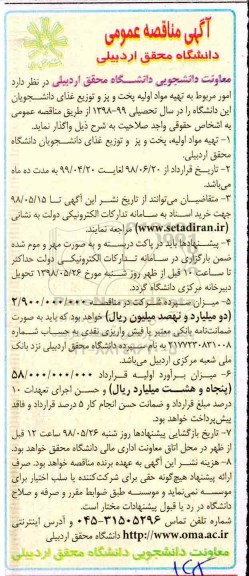 آگهی مناقصه عمومی
دانشگاه محقق اردبیلی
معاونت دانشجویی دانشگاه محقق اردبیلی در نظر دارد
امور مربوط به تهیه مواد اولیه پخت و پز و توزیع غذای دانشجویان
این دانشگاه را در سال تحصیلی ۹۹-۱۳۹۸ از طریق مناقصه عمومی
به اشخاص حقوقی واجد صلاحیت به شرح ذیل واگذار نماید.
۱- تهیه مواد اولیه، پخت و پز و توزیع غذای دانشجویان دانشگاه
محقق اردبیلی.
۲- تاریخ قرارداد از ۹۸/۰۶/۲۰ لغایت ۹۹/۰۴/۲۰ به مدت ده ماه
می‌باشد.
۳- متقاضیان می‌توانند از تاریخ نشر این آگهی تا ۹۸/۰۵/۱۵
جهت خرید اسناد به سامانه تدارکات الکترونیکی دولت به نشانی
(www.setadiran.ir) مراجعه نمایند.
۴- پیشنهادها باید در پاکت دربسته و به صورت مهر و موم شده
ضمن بارگزاری در سامانه تدارکات الکترونیکی دولت حداکثر
تا ساعت ۱۰ قبل از ظهر روز شنبه مورخ ۱۳۹۸/۰۵/۲۶ تحویل
دبیرخانه مرکزی دانشگاه گردد.
۵- میزان سپرده شرکت در مناقصه ۲/۹۰۰/۰۰۰/۰۰۰
(دو میلیارد و نهصد میلیون ریال) خواهد بود که باید به صورت
ضمانت‌نامه بانکی معتبر یا فیش واریزی نقدی به حساب شماره
۲۱۷۷۲۳۰۸۳۱۰۰۸ به نام سپرده دانشگاه محقق اردبیلی نزد بانک
ملی شعبه مرکزی اردبیل می‌باشد.
۶- میزان برآورد اولیه قرارداد ۵۸/۰۰۰/۰۰۰/۰۰۰
(پنجاه و هشت میلیارد ریال) و حسن اجرای تعهدات ۱۰
درصد مبلغ قرارداد و ضمانت حسن انجام کار ۵ درصد قرارداد و فاقد
پیش‌پرداخت خواهد بود.
۷- تاریخ بازگشایی پیشنهادها روز شنبه ۹۸/۰۵/۲۶ ساعت ۱۲ قبل
از ظهر در محل اتاق معاونت اداری مالی دانشگاه محقق خواهد بود.
۸- هزینه نشر این آگهی به عهده برنده مناقصه خواهد بود. صرف
ارائه پیشنهاد هیچ‌گونه حقی برای شرکت‌کننده یا سلب اختیار برای
موسسه نمی‌نماید و موسسه طبق ضوابط مقرر و صرفه و صلاح
دانشگاه در رد یا قبول پیشنهادات مختار است.
شماره تلفن تماس ۳۱۵۰۵۲۹۶-۰۴۵ و آدرس اینترنتی
http://www.oma.ac.ir دانشگاه می‌باشد.
معاونت دانشجویی دانشگاه محقق اردبیلی